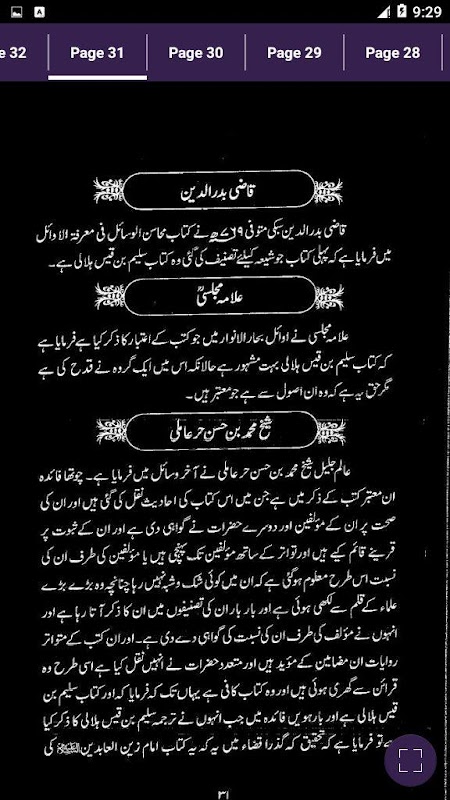 9:29
e 32
Page 31
Page 30
Page 29
Page 28
قاضی بدرالدین
قاضی بدرالدین سبکی متوفی ۷۶۹ھ نے کتاب محاسن الوسائل فی معرفۃ الاوائل
میں فرمایا ہے کہ پہلی کتاب جو شیعہ کیلئے تصنیف کی گئی وہ کتاب سلیم بن قیس ہلالی ہے۔
علامہ مجلسیؒ
علامہ مجلسی نے اوائل بحارالانوار میں جو کتب کے اعتبار کا ذکر کیا ہے فرمایا ہے
کہ کتاب سلیم بن قیس ہلالی بہت مشہور ہے حالانکہ اس میں ایک گروہ نے قدح کی ہے
مگر حق یہ ہے کہ وہ ان اصول سے ہے جو معتبر ہیں۔
شیخ محمد بن حسن حر عاملی
عالم جلیل شیخ محمد بن حسن حر عاملی نے آخر وسائل میں فرمایا ہے۔ چوتھا فائدہ
ان معتبر کتب کے ذکر میں ہے جن میں اس کتاب کی احادیث نقل کی گئی ہیں اور ان کی
صحت پر ان کے مؤلفین اور دوسرے حضرات نے گواہی دی ہے اور ان کے ثبوت پر
قرینے قائم کیے ہیں اور تواتر کے ساتھ مؤلفین تک پہنچی ہیں یا مؤلفین کی طرف ان کی
نسبت اس طرح معلوم ہوگئی ہے کہ ان میں کوئی شک و شبہ نہیں رہا چنانچہ وہ بڑے بڑے
علماء کے قلم سے لکھی ہوئی ہے اور بار بار ان کی تصنیفوں میں ان کا ذکر آتا رہا ہے اور
انہوں نے مؤلف کی طرف ان کی نسبت کی گواہی دے دی ہے۔ اور ان کتب کے متواتر
روایات ان مضامین کے مؤید ہیں اور متعدد حضرات نے انہیں نقل کیا ہے اسی طرح وہ
قرائن سے گھری ہوئی ہیں اور وہ کتاب کافی ہے یہاں تک کہ فرمایا کہ اور کتاب سلیم بن
قیس ہلالی ہے اور بارہویں فائدہ میں جب انہوں نے ترجمہ سلیم بن قیس ہلالی کا ذکر کیا
ہے تو فرمایا ہے کہ تحقیق کہ گذرا قضاء میں یہ کہ یہ کتاب امام زین العابدین کی
۳۱